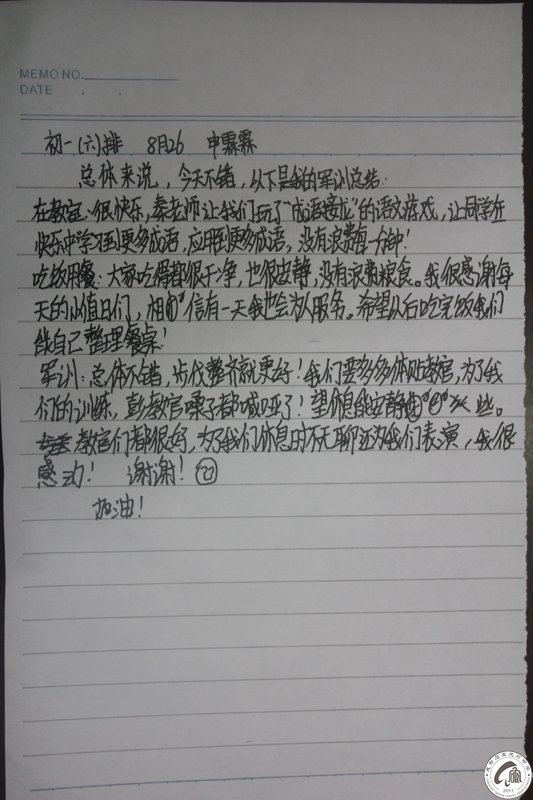 MEMO NO.
DATE . .
初一(六)排 8月26 申霖霖
总体来说，今天不错，以下是我的军训总结：
在教室：很快乐，秦老师让我们玩了“成语接龙”的语文游戏，让同学在
快乐中学习到更多成语，应用到更多成语，没有浪费每一分钟！
吃饭用餐：大家吃得都很干净，也很安静，没有浪费粮食。我很感谢每
天的值日们，相信有一天我也会为人服务。希望以后吃完饭我们
能自己整理餐桌！
军训：总体不错，步伐整齐就更好！我们要多多体贴教官，为了我
们的训练，彭教官嗓子都喊哑了！望休息能安静些。
教官们都很好，为了我们休息时不无聊还为我们表演，我很
感动！ 谢谢！
加油！
2011